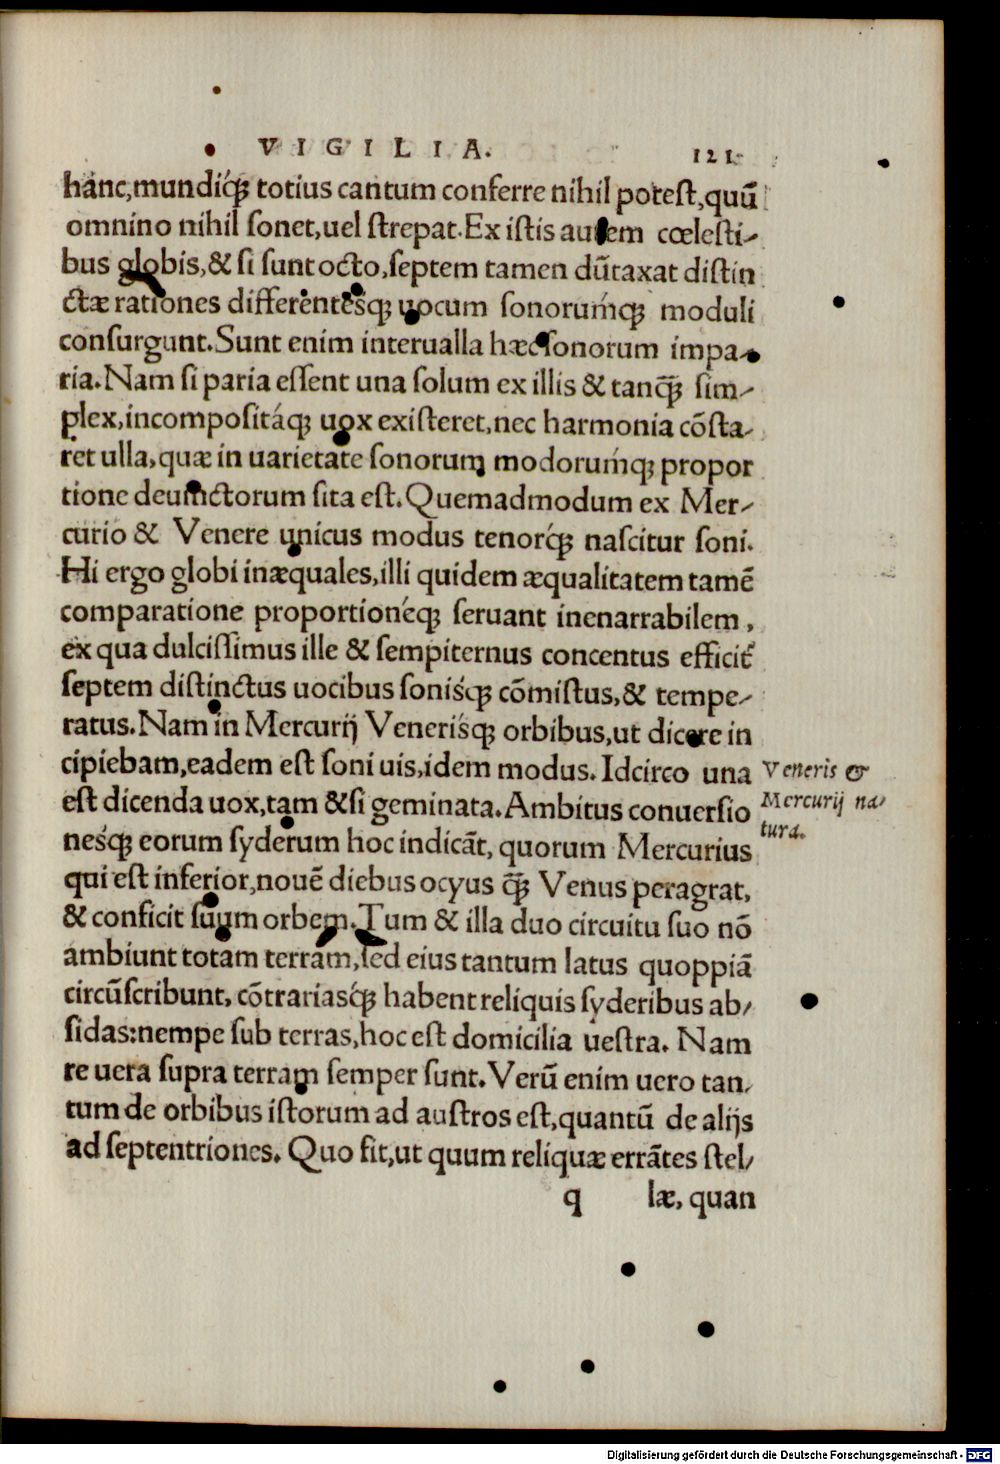 VIGILIA. 121
hanc, mundiq́; totius cantum conferre nihil potest, quū
omnino nihil sonet, uel strepat. Ex istis autem cœlesti-
bus globis, & si sunt octo, septem tamen dūtaxat distin
ctæ rationes differentesq́; uocum sonorumq́; moduli
consurgunt. Sunt enim interualla hæc sonorum impa-
ria. Nam si paria essent una solum ex illis & tanq̃; sim-
plex, incompositáq; uox existeret, nec harmonia cōsta-
ret ulla, quæ in uarietate sonorum modorumq́; propor
tione deuinctorum sita est. Quemadmodum ex Mer-
curio & Venere unicus modus tenorq́; nascitur soni.
Hi ergo globi inæquales, illi quidem æqualitatem tamē
comparatione proportionéq; seruant inenarrabilem,
ex qua dulcissimus ille & sempiternus concentus efficit᷑
septem distinctus uocibus sonisq́; cōmistus, & tempe-
ratus. Nam in Mercurij Venerisq́; orbibus, ut dicere in
cipiebam, eadem est soni uis, idem modus. Idcirco una
Veneris &
est dicenda uox, tam & si geminata. Ambitus conuersio
Mercurij na-
tura.
nesq́; eorum syderum hoc indicāt, quorum Mercurius
qui est inferior, nouē diebus ocyus q̃; Venus peragrat,
& conficit suum orbem. Tum & illa duo circuitu suo nō
ambiunt totam terram, sed eius tantum latus quoppiā
circūscribunt, cōtrariasq́; habent reliquis syderibus ab-
sidas: nempe sub terras, hoc est domicilia uestra. Nam
re uera supra terram semper sunt. Verū enim uero tan-
tum de orbibus istorum ad austros est, quantū de alijs
ad septentriones. Quo fit, ut quum reliquæ errātes stel-
q læ, quan
Digitalisierung gefördert durch die Deutsche Forschungsgemeinschaft - DFG